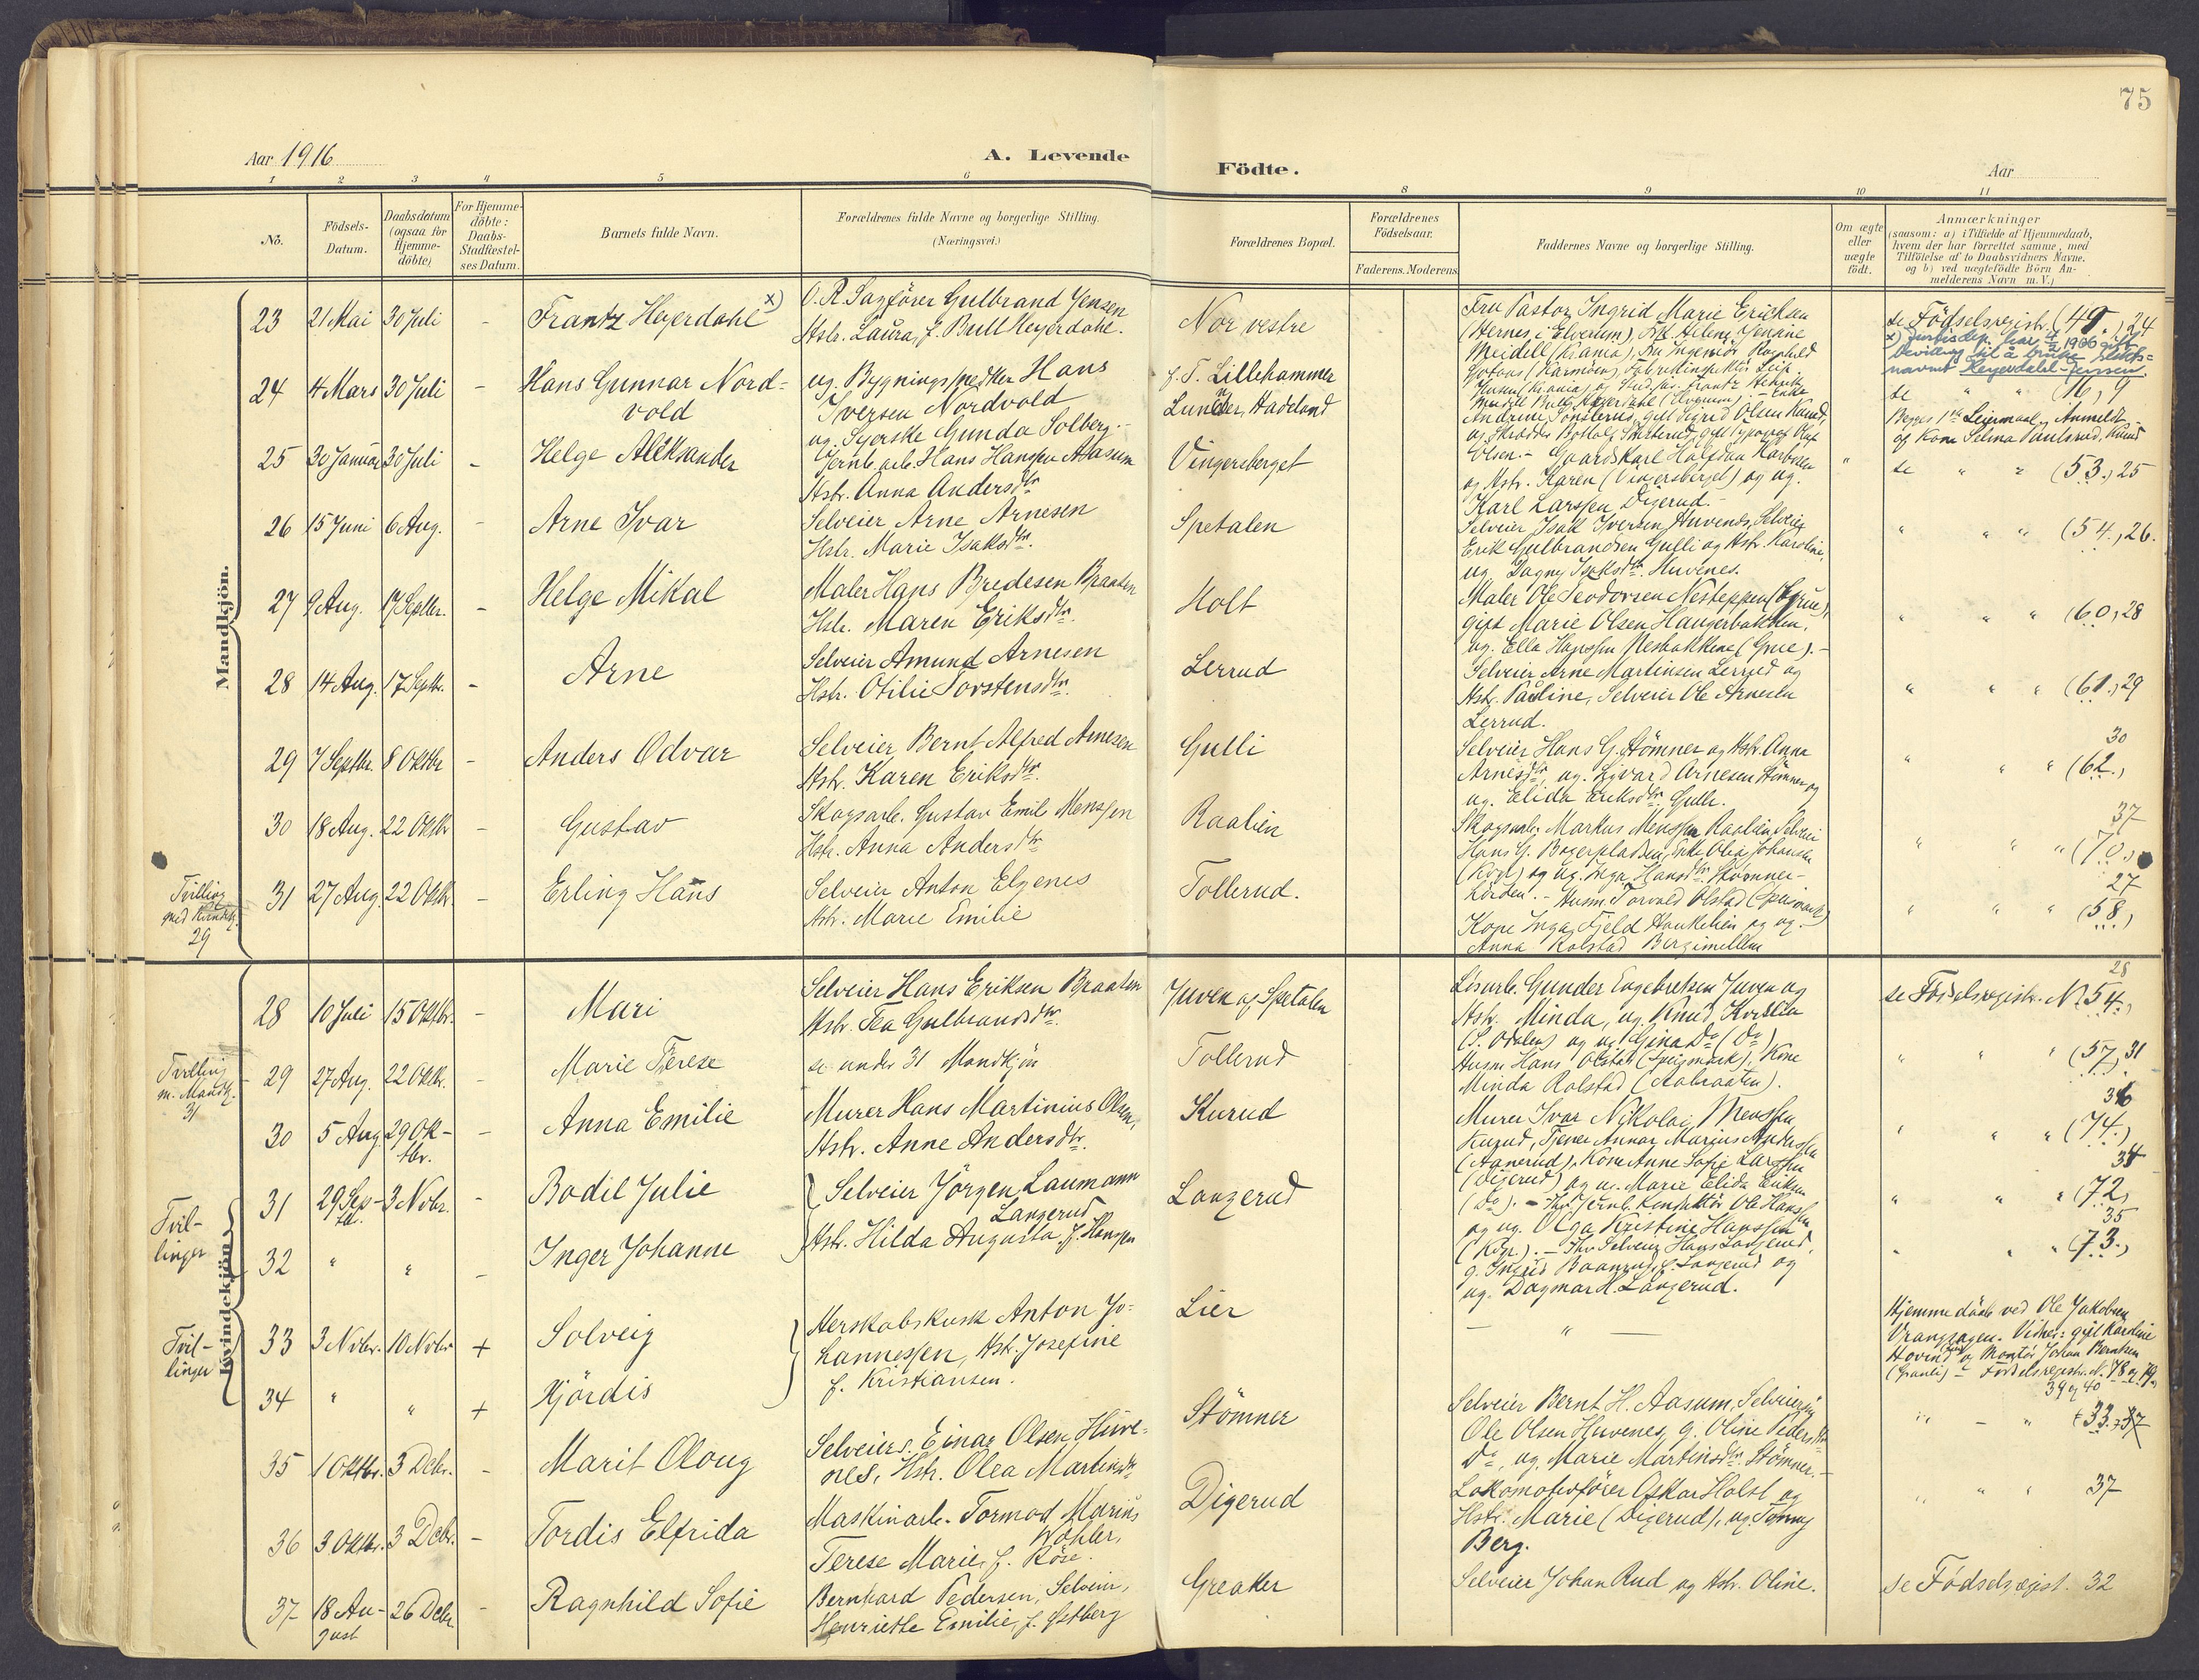 75
Aar 1916
A. Levende
Födte.
Aar
1 2 3 4 5 6 8 9 10 11
No.
Födsels-
Datum.
Daabsdatum
(ogsaa for
Hjemme-
döbte)
For Hjemme-
döbte:
Daabs-
Stadfæstel-
ses Datum.
Barnets fulde Navn.
Forældrenes fulde Navne og borgerlige Stilling.
(Næringsvei.)
Forældrenes Bopæl.
Forældrenes
Födselsaar.
Faderens. Moderens
Faddernes Navne og borgerlige Stilling.
Om ægte
eller
uægte
födt.
Anmærkninger
(saasom: a) i Tilfælde af Hjemmedaab,
hvem der har forrettet samme, med
Tilföielse af to Daabsvidners Navne.
og b) ved uægtefödte Börn An-
melderens Navn m.V.)
Mandkjön.
23 21 Mai 30 Juli - Frantz Heyerdahl x)
O.R. Sagförer Gulbrand Jensen
Hstr. Laura, f. Bull Heyerdahl.
Nor vestre
Fru Pastor Ingrid Marie Ericksen
(Hernes i Elverum), Frk Helene Jensine
Meidell (Krania), Fru Ingeniör Ragnhild
se Födselsregistr. (49.) 24
x) Justisdep. har 1926 gitt
bevilling til å bruke slekts-
navnet Heyerdahl-Jensen.
24 4 Mars 30 Juli - Hans Gunnar Nord-
vold
ug. Bygningssnedker Hans
Iversen Nordvold
og Syerske Gunda Solberg.-
f. T. Lillehammer
Lunder, Hadeland
se " " (16, 9
Anmeldt
af Kone Selma Paulsrud, Kurud
25 30 Januar 30 Juli - Helge Aleksander
Jernb. arb. Hans Hansen Aasum
Hstr. Anna Andersdtr
Vingersberget
Olsen.- Gaardskarl Halfdan
og Hstr. Karen (Vingersberget) og ug.
Karl Larssen Digerud.-
se " " (53.) 25
26 15 Juni 6 Aug. - Arne Ivar
Selveier Arne Arnesen
Hstr. Marie Isaksdtr.
Spetalen
Selveier Isak Iversen Huvenes, Selveier
Erik Gulbrandsen Gulli og Hstr. Karoline,
ug Dagny Isaksdtr. Huvenes.
" " " (54., 26.
27 9 Aug. 17 Septbr. - Helge Mikal
Maler Hans Bredesen Braaten
Hstr. Maren Eriksdtr.
Holt
Maler Ole Teodorsen Nesteppen (Grue),
gift Marie Olsen Haugerbakken,
ug. Ella Hanssen Nesbakkene (Grue).-
" " " (60., 28
28 14 Aug. 17 Septbr. - Arne
Selveier Amund Arnesen
Hstr. Otilie Torstensdtr.
Lerrud
Selveier Arne Martinsen Lerrud og
Hstr. Pauline, Selveier Ole Arnesen
Lerrud.
" " " (61., 29
29 7 Septbr. 8 Oktbr - Anders Odvar
Selveier Bernt Alfred Arnesen
Hstr. Karen Eriksdtr.
Gulli
Selveier Hans G. Stömner og Hstr. Anna
Arnesdtr, ug. Sigvard Arnesen Stömner og
ug. Elida Eriksdtr. Gulli.
30
" " " (62.,
30 18 Aug. 22 Oktbr - Gustav
Skogsarb. Gustav Emil Menssen
Hstr. Anna Andersdtr
Raalien
Skogsarb. Markus Menssen Raalien, Selveier
Hans G. Bogerpladsen, Enke Olea Johansen
(Kogl) og ug. Inga Hansdtr. Stömner-
37
" " " (70.,
Tvilling
med Kvindekj.
29
31 27 Aug. 22 Oktbr. - Erling Hans
Selveier Anton Elgenes
Hstr. Marie Emilie
Tollerud.
Husm. Torvald Olstad (Speismark)
Kone Inga Fjeld Haukelien og ug.
Anna Rolstad Bergimellem
27
" " " (58.)
Kvindekjön
28 10 Juli 15 Oktbr. - Mari
Selveier Hans Eriksen Braaten
Hstr. Tea Gulbrandsdtr.
Juven af Spetalen
Lösarb. Gunder Engebretsen Juven og
Hstr. Minda, ug. Knud Kvislen
(S. Odalen) og ug. Gina Do (Do)
28
se Födselsregistr. N. 54.,
Tvilling
m. Mandkj.
31
29 27 Aug. 22 Oktbr. - Marie Terese
se under 31 Mandkjön
Tollerud
Husm. Hans Olstad (Speismark), Kone
Minda Rolstad (Aabraaten).
" " " (57., 31
30 5 Aug 29 Ok-
tbr. - Anna Emilie
Murer Hans Martinius Olsen,
Hstr. Anne Andersdtr.
Kurud
Murer Ivar Nikolai Menssen
Kurud, Tjener Annar Marius Anderssen
(Aanerud), Kone Anne Sofie Larssen
(Digerud) og ug. Marie Elida Eriksen
36
" " " (74.)
Tvil-
linger
31 29 Sep-
tbr. 3 Novbr. - Bodil Julie
Selveier Jörgen Laumann
Langerud
Hstr. Hilda Augusta f. Hanssen
Langerud
(Do).- Jernb. Konduktör Ole Hanssen
og ug. Olga Kristine Hanssen
34
" " " (72,
32 " " - Inger Johanne
(Kogl).- Selveier Hans Langerud,
g. Ingrid Baanrud, f. Langerud og
ug. Dagmar H. Langerud.
35
" " " (73.,
Tvil-
linger
33 3 Novbr. 10 Novbr + Solveig
Herskabskusk Anton Jo-
hannessen, Hstr. Josefine
f. Kristiansen.
Lier
— " —
Hjemmedöbt ved Ole Jakobsen
Vrangsagen. Vidner: gift Karoline
Hovind og Montör Johan Berntsen
(Granli) - Födselsregistr. N. 78 og 79.
39 og 40
34 " " + Hjördis
35 1 Oktbr. 3 Debr. - Marit Oloug
Selveiers. Einar Olsen Huve-
nes, Hstr. Olea Martinsdtr
Stömner
Selveier Bernt H. Aasum, Selveier
Ole Olsen Huvenes, g. Oline Pedersdtr
Do, ug. Marie Martinsdtr. Stömner.-
" - " 33
36 3 Oktbr. 3 Debr. - Tordis Elfrida
Maskinarb. Tormod Marius
Wöhler,
Terese Marie, f. Röse.
Digerud
Lokomotivförer Oskar Holst og
Hstr. Marie (Digerud), ug. Tommy
Berg.
" " " 37
37 18 Au-
gust 26 Debr - Ragnhild Sofie
Bernhard Pedersen, Selveier,
Henriette Emilie, f. Østberg
Greaker
Selveier Johan Rud og Hstr. Oline.
se Födselsregist. 32